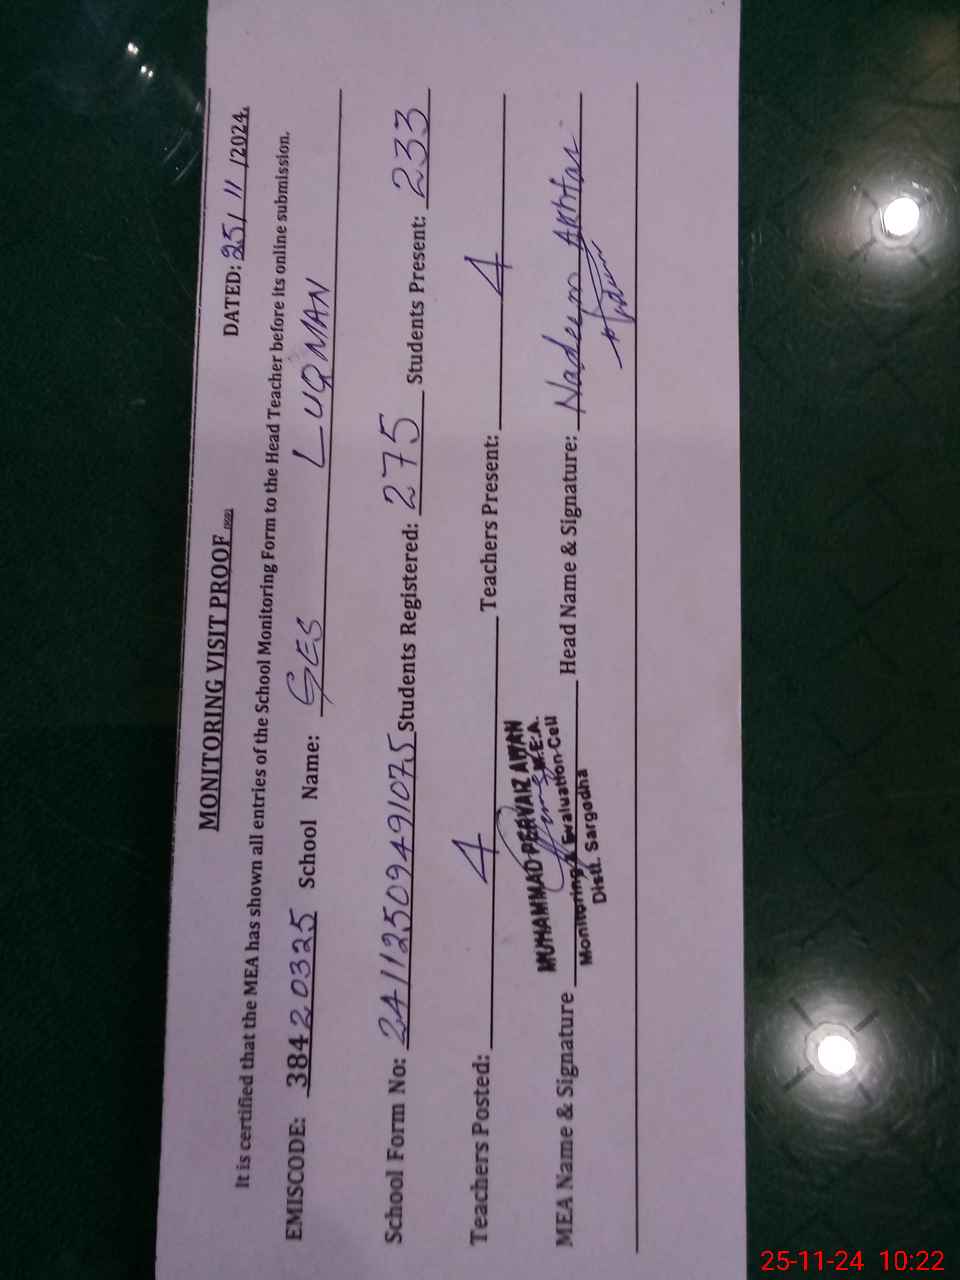 MONITORING VISIT PROOF
DATED: 25/11/2024.
It is certified that the MEA has shown all entries of the School Monitoring Form to the Head Teacher before its online submission.
EMISCODE: 38420325 School Name: GES LUQMAN
School Form No: 24112509491075 Students Registered: 275 Students Present: 233
Teachers Posted: 4 Teachers Present: 4
MUHAMMAD PERVAIZ AWAN
M.E.A.
MEA Name & Signature Head Name & Signature: Nadeem Akhtar
Monitoring & Evaluation Cell
Distt. Sargodha
25-11-24 10:22